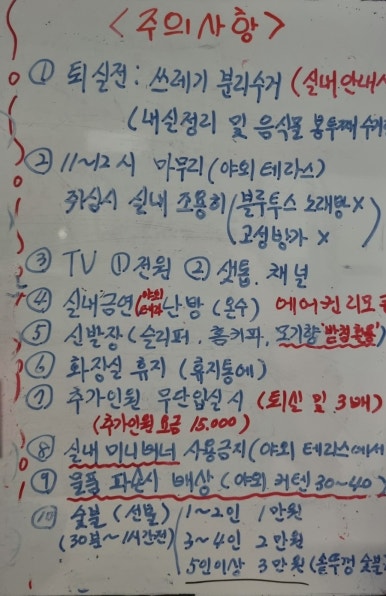 <주의사항>
① 퇴실전: 쓰레기 분리수거 (실내안내
(내실정리 및 음식물 봉투째 수거
② 11~12시 마무리(야외테라스)
취심시 실내 조용히 (블루투스 노래방 X
고성방가 X)
③ TV ①전원 ②셋톱. 채널
④ 실내금연(야외테라) 난방 (온수) 에어컨리모
⑤ 신발장(슬리퍼. 홈키파. 모기향 받침활용)
⑥ 화장실 휴지 (휴지통에)
⑦ 추가인원 무단입실시 (퇴실 및 3배)
(추가인원 요금 15.000)
⑧ 실내 미니버너 사용금지(야외 테라스에서
⑨ 물품 파손시 배상 (야외 커텐 30~40)
⑩ 숯불 (선불) 1~2인 1만원
(30분~1시간전) 3~4인 2만원
5인이상 3만원 (솥뚜껑 숯불